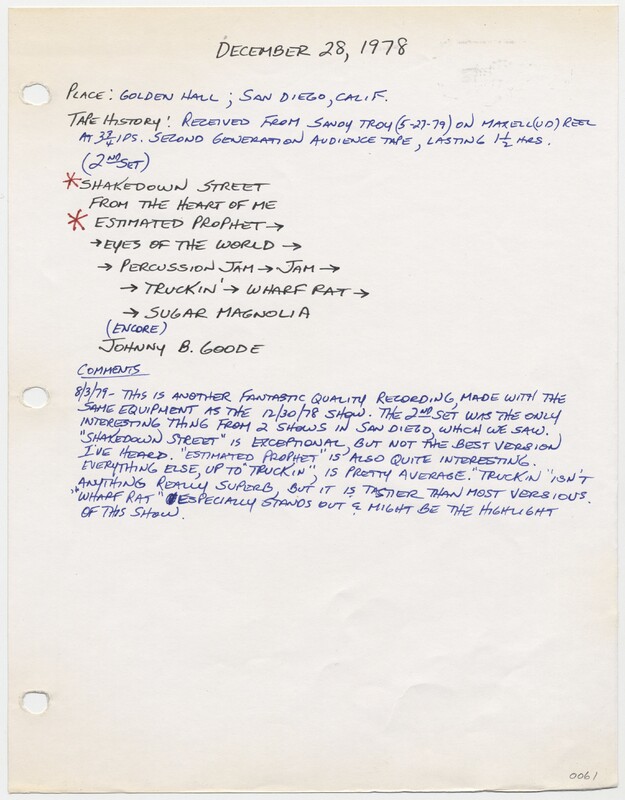 DECEMBER 28, 1978
PLACE: GOLDEN HALL; SAN DIEGO, CALIF.
TAPE HISTORY: RECEIVED FROM SANDY TROY (5-27-79) ON MAXELL (UD) REEL
AT 3 3/4 IPS. SECOND GENERATION AUDIENCE TAPE, LASTING 1 1/2 HRS.
(2ND SET)
* SHAKEDOWN STREET
FROM THE HEART OF ME
* ESTIMATED PROPHET →
→ EYES OF THE WORLD →
→ PERCUSSION JAM → JAM →
→ TRUCKIN' → WHARF RAT →
→ SUGAR MAGNOLIA
(ENCORE)
JOHNNY B. GOODE
COMMENTS
8/3/79- THIS IS ANOTHER FANTASTIC QUALITY RECORDING, MADE WITH THE
SAME EQUIPMENT AS THE 12/30/78 SHOW. THE 2ND SET WAS THE ONLY
INTERESTING THING FROM 2 SHOWS IN SAN DIEGO, WHICH WE SAW.
"SHAKEDOWN STREET" IS EXCEPTIONAL, BUT NOT THE BEST VERSION
I'VE HEARD. "ESTIMATED PROPHET" IS ALSO QUITE INTERESTING.
EVERYTHING ELSE, UP TO "TRUCKIN", IS PRETTY AVERAGE. "TRUCKIN" ISN'T
ANYTHING REALLY SUPERB, BUT IT IS TASTIER THAN MOST VERSIONS.
"WHARF RAT" ESPECIALLY STANDS OUT & MIGHT BE THE HIGHLIGHT
OF THIS SHOW.
0061